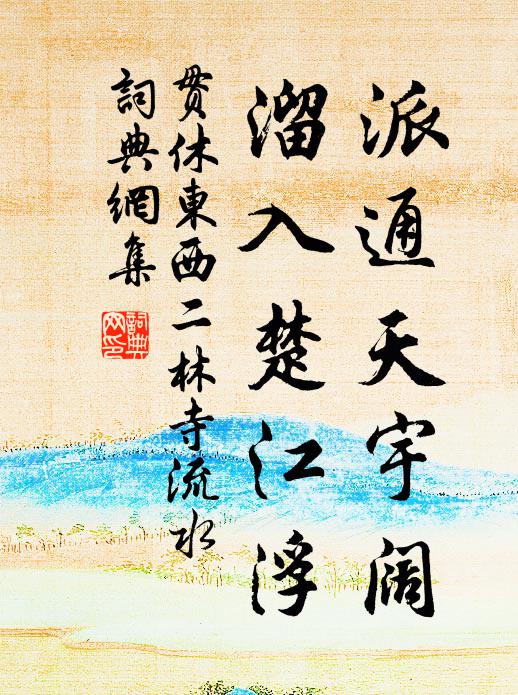 派通天宇阔
溜入楚江浮
贯休東西二林寺流水
詞典網集
詞典
网印